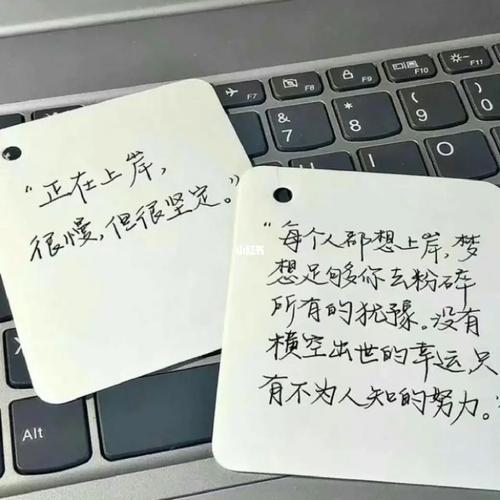 "正在上岸，
很慢，但很坚定。"
"每个人都想上岸，梦
想足够你去粉碎
所有的犹豫。没有
横空出世的幸运，只
有不为人知的努力。"
小红书
F7
F8
F9
F10
F11
&
7
*
8
(
9
)
0
U
I
X
Alt